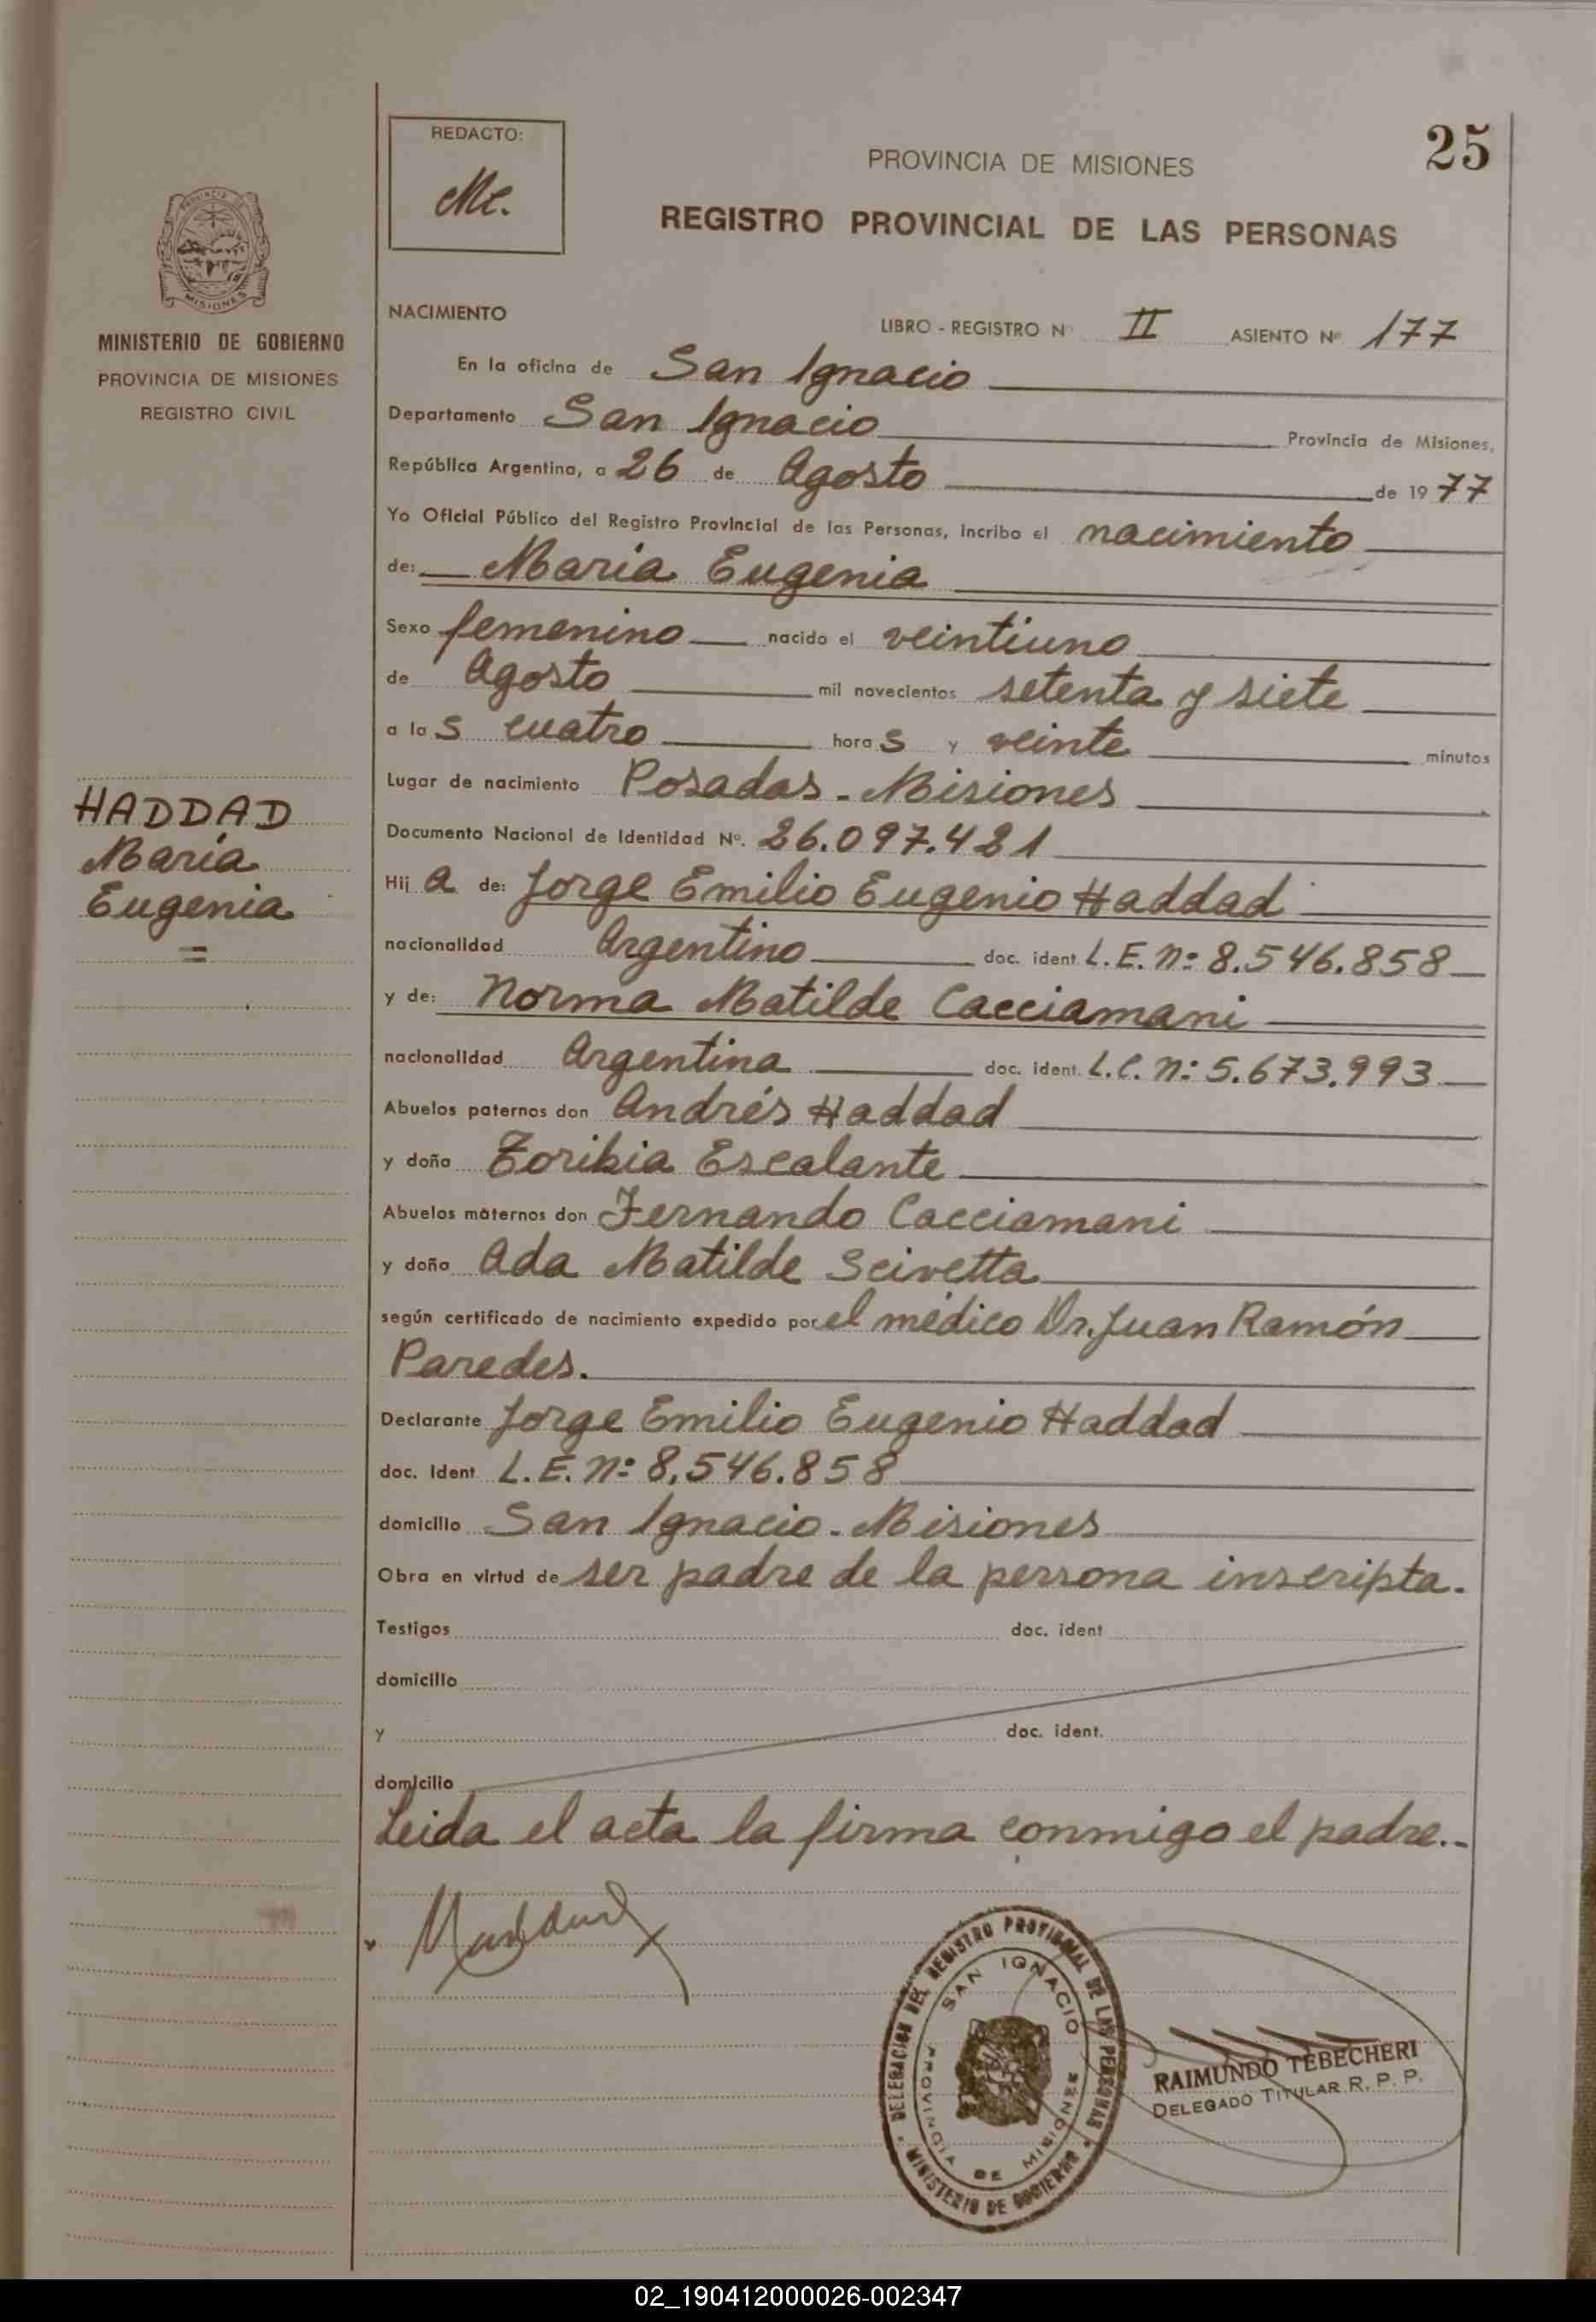 REDACTO:
Me.
25
PROVINCIA DE MISIONES
REGISTRO PROVINCIAL DE LAS PERSONAS
PROVINCIA
MISIONES
MINISTERIO DE GOBIERNO
PROVINCIA DE MISIONES
REGISTRO CIVIL
NACIMIENTO
LIBRO - REGISTRO N° II ASIENTO Nº 177
En la oficina de San Ignacio
Departamento San Ignacio Provincia de Misiones,
República Argentina, a 26 de Agosto de 1977
Yo Oficial Público del Registro Provincial de las Personas, incribo el nacimiento
de: María Eugenia
Sexo femenino nacido el veintiuno
de Agosto mil novecientos setenta y siete
a las cuatro horas y veinte minutos
Lugar de nacimiento Posadas - Misiones
HADDAD
María
Eugenia
=
Documento Nacional de Identidad Nº. 26.097.421
Hija de: Jorge Emilio Eugenio Haddad
nacionalidad Argentino doc. ident. L.E.Nº: 8.546.858
y de: Norma Matilde Cacciamani
nacionalidad Argentina doc. ident. L.C.Nº: 5.673.993
Abuelos paternos don Andrés Haddad
y doña Toribia Escalante
Abuelos maternos don Fernando Cacciamani
y doña Ada Matilde Scivetta
según certificado de nacimiento expedido por el médico Dr. Juan Ramón
Paredes.
Declarante Jorge Emilio Eugenio Haddad
doc. Ident. L.E.Nº: 8.546.858
domicilio San Ignacio - Misiones
Obra en virtud de ser padre de la persona inscripta.
Testigos doc. ident
domicilio
y doc. ident.
domicilio
Leida el acta la firma conmigo el padre.-
DELEGACION DEL REGISTRO PROVINCIAL DE LAS PERSONAS
MINISTERIO DE GOBIERNO
SAN IGNACIO
PROVINCIA DE MISIONES
RAIMUNDO TEBECHERI
DELEGADO TITULAR R. P. P.
02_190412000026-002347